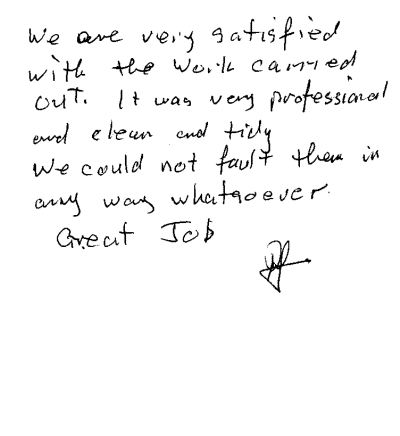 We are very satisfied
with the work carried
out. It was very professional
and clean and tidy
We could not fault them in
any way whatsoever.
Great Job